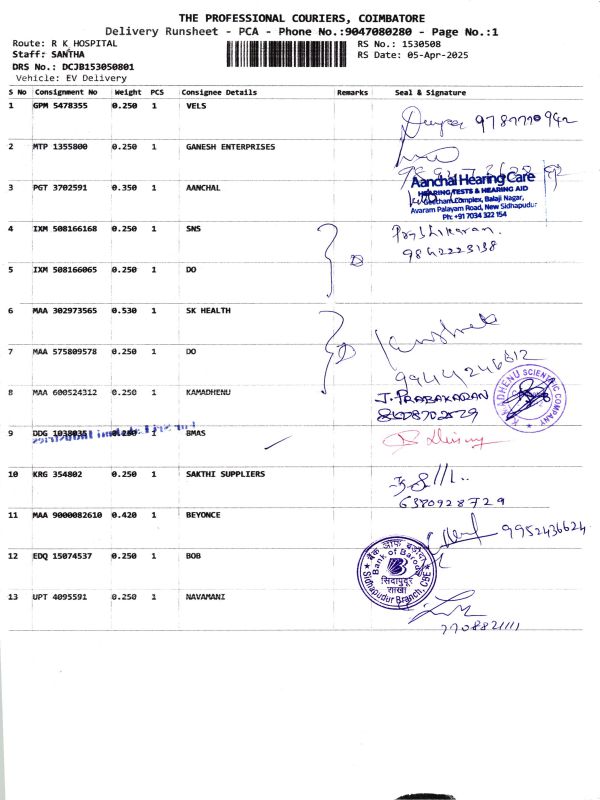 THE PROFESSIONAL COURIERS, COIMBATORE
Delivery Runsheet - PCA - Phone No.:9047080280 - Page No.:1
Route: R K HOSPITAL
RS No.: 1530508
Staff: SANTHA
RS Date: 05-Apr-2025
DRS No.: DCJB153050801
Vehicle: EV Delivery
S No Consignment No Weight PCS Consignee Details Remarks Seal & Signature
1 GPM 5478355 0.250 1 VELS
2 MTP 1355800 0.250 1 GANESH ENTERPRISES
3 PGT 3702591 0.350 1 AANCHAL
Aanchal Hearing Care
HEARING TESTS & HEARING AID
Goutham Complex, Balaji Nagar,
Avaram Palayam Road, New Sidhapudur
Ph: +91 7034 322 154
4 IXM 508166168 0.250 1 SNS
Prabhakaran.
9842223138
5 IXM 508166065 0.250 1 DO
6 MAA 302973565 0.530 1 SK HEALTH
7 MAA 575809578 0.250 1 DO
9944246612
8 MAA 600524312 0.250 1 KAMADHENU
J. PRABAKARAN
KAMADHENU SCIENTIFIC COMPANY
9 DDG 1038035 0.250 1 BMAS
10 KRG 354802 0.250 1 SAKTHI SUPPLIERS
6380928729
11 MAA 9000082610 0.420 1 BEYONCE
9952436624
12 EDQ 15074537 0.250 1 BOB
बैंक ऑफ़ बड़ौदा
Bank of Baroda
सिद्दापुदूर
शाखा
Sidhapudur Branch, CBE
13 UPT 4095591 0.250 1 NAVAMANI
7708821111